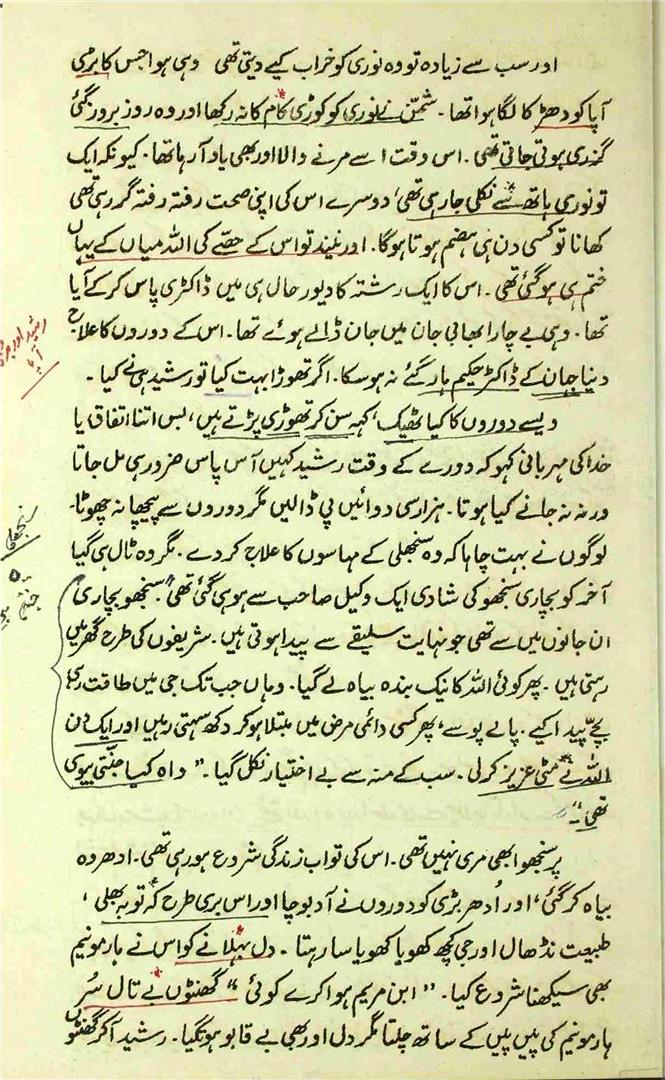 اور سب سے زیادہ تو وہ نوری کو خراب کیے دیتی تھی وہی ہوا جس کا بڑی
آپا کو دھڑکا لگا ہوا تھا۔ شمّن نے نوری کو کوڑی کام کا نہ رکھا اور وہ روز بروز گئی
گزری ہوتی جاتی تھی۔ اس وقت اسے مرنے والا اور بھی یاد آ رہا تھا۔ کیونکہ ایک
تو نوری ہاتھ سے نکلی جا رہی تھی، دوسرے اس کی اپنی صحت رفتہ رفتہ گر رہی تھی
کھانا تو کسی دن ہی ہضم ہوتا ہوگا۔ اور نیند تو اس کے حصّے کی اللہ میاں کے یہاں
ختم ہی ہو گئی تھی۔ اس کا ایک رشتہ کا دیور حال ہی میں ڈاکٹری پاس کر کے آیا
تھا۔ وہی بے چارا بھابی جان میں جان ڈالے ہوئے تھا۔ اس کے دوروں کا علاج
دنیا جہان کے ڈاکٹر حکیم ہار گئے نہ ہو سکا۔ اگر تھوڑا بہت کیا تو رشید ہی نے کیا۔
ویسے دوروں کا کیا ٹھیک، کہہ سن کر تھوڑی پڑتے ہیں، بس اتنا اتفاق یا
خدا کی مہربانی کہو کہ دورے کے وقت رشید کہیں آس پاس ضرور ہی مل جاتا
ورنہ نہ جانے کیا ہوتا۔ ہزار سی دوائیں پی ڈالیں مگر دوروں سے پیچھا نہ چھوٹا۔
لوگوں نے بہت چاہا کہ وہ سنجھلی کے مہاسوں کا علاج کر دے۔ مگر وہ ٹال ہی گیا
آخر کو بچاری سنجھو کی شادی ایک وکیل صاحب سے ہو ہی گئی تھی۔ سنجھو بچاری
ان جانوں میں سے تھی جو نہایت سلیقے سے پیدا ہوتی ہیں۔ شریفوں کی طرح گھر میں
رہتی ہیں۔ پھر کوئی اللہ کا نیک بندہ بیاہ لے گیا۔ وہاں جب تک جی میں طاقت رہی
بچّے پیدا کیے۔ پالے پوسے، پھر کسی دائمی مرض میں مبتلا ہو کر دکھ سہتی رہیں اور ایک دن
اللہ نے مٹی عزیز کر لی۔ سب کے منہ سے بے اختیار نکل گیا۔ "واہ کیا جنّتی بیوی
تھی"۔
پر سنجھو ابھی مری نہیں تھی۔ اس کی تو اب زندگی شروع ہو رہی تھی۔ ادھر وہ
بیاہ کر گئی، اور اُدھر بڑی کو دوروں نے آ دبوچا اور اس بری طرح کہ توبہ بھلی،
طبیعت نڈھال اور جی کچھ کھویا کھویا سا رہتا۔ دل بہلانے کو اس نے ہارمونیم
بھی سیکھنا شروع کیا۔ "ابن مریم ہوا کرے کوئی" گھنٹوں بے تال سُر
ہارمونیم کی پیں پیں کے ساتھ چلتا مگر دل اور بھی بے قابو ہو گیا۔ رشید آ کر گھنٹوں
رشید اور بڑی
آپا
سنجھلی